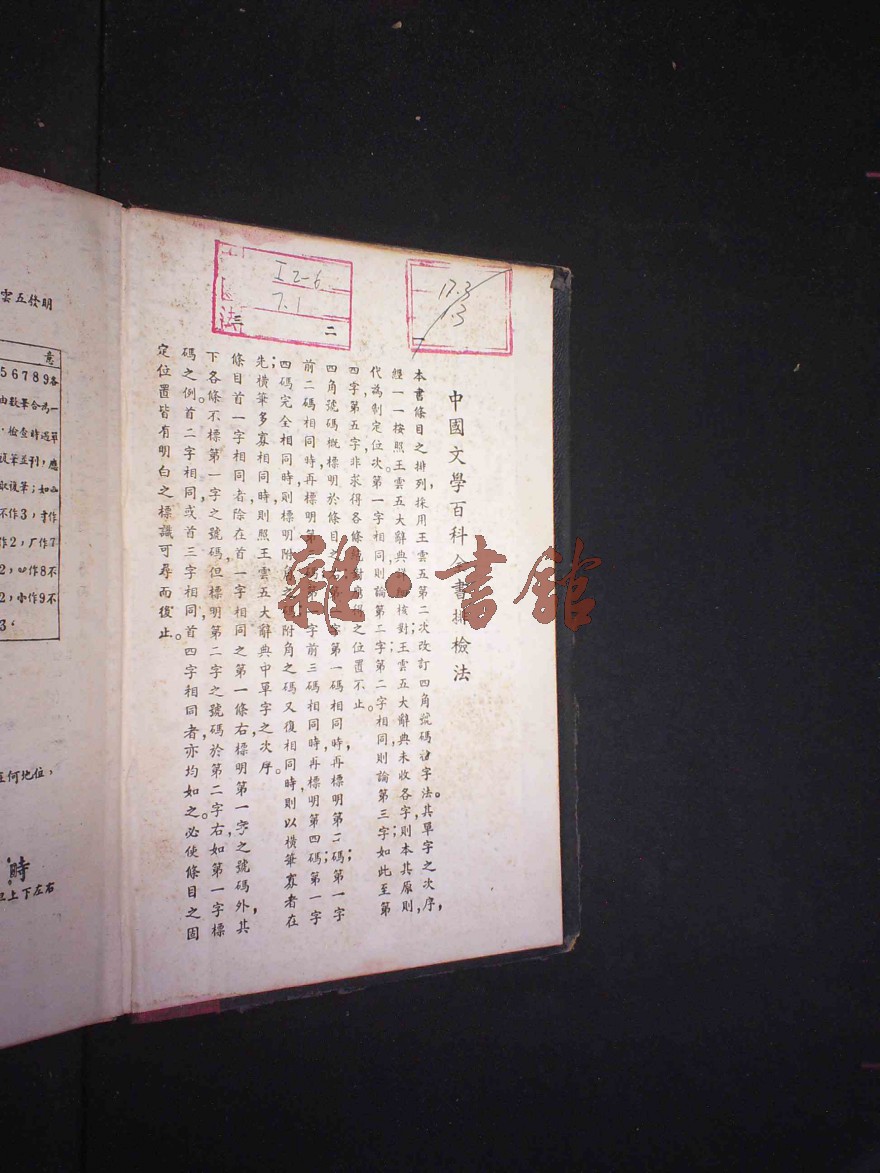 中國文學百科全書排檢法
一
本書條目之排列，採用王雲五第二次改訂四角號碼檢字法。其單字之次序，
經一一按照王雲五大辭典詳細核對；王雲五大辭典未收各字，則本其原則，
代為制定位次。第一字相同，則論第二字；第二字相同，則論第三字；如此至第
四字第五字，非求得各條絕對之位置不止。
二
四角號碼概標明於條目之第一字第一碼相同時，再標明第二碼；第一字
前二碼相同時，再標明第三碼；第一字前三碼相同時，再標明第四碼；第一字
四碼完全相同時，則標明附角之碼；附角之碼又復相同時，則以橫筆寡者在
先；橫筆多寡相同時，則照王雲五大辭典中單字之次序。
三
條目首一字相同者，除在首一字相同之第一條右，標明第一字之號碼外，其
下各條不標第一字之號碼，但標明第二字之號碼於第二字右，如第一字標
碼之例。首二字相同，或首三字相同，首四字相同者，亦均如之。必使條目之固
定位置皆有明白之標識可尋而後止。
I2-6
7.1
17.3
1.3
雲五發明
意
56789各
由數筆合為一
2，小作9不
3‘
在何地位，
時
上下左右
雜·書館